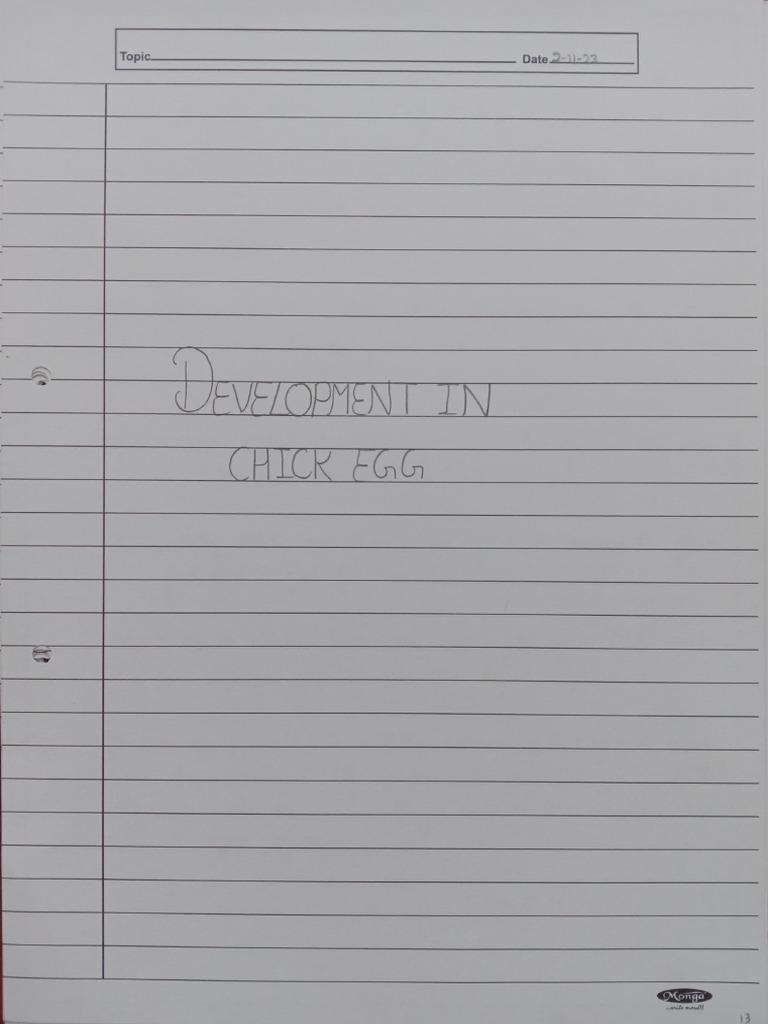 Topic Date 2-11-23
DEVELOPMENT IN
CHICK EGG
Monga
...write more!!!
13